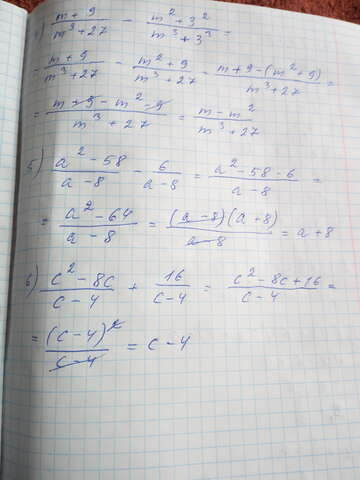 ) \frac{m+9}{m^3+27} - \frac{m^2+3^2}{m^3+3^3} =
= \frac{m+9}{m^3+27} - \frac{m^2+9}{m^3+27} = \frac{m+9-(m^2+9)}{m^3+27} =
= \frac{m+9-m^2-9}{m^3+27} = \frac{m-m^2}{m^3+27}
5) \frac{a^2-58}{a-8} - \frac{6}{a-8} = \frac{a^2-58-6}{a-8} =
= \frac{a^2-64}{a-8} = \frac{(a-8)(a+8)}{a-8} = a+8
6) \frac{c^2-8c}{c-4} + \frac{16}{c-4} = \frac{c^2-8c+16}{c-4} =
= \frac{(c-4)^2}{c-4} = c-4